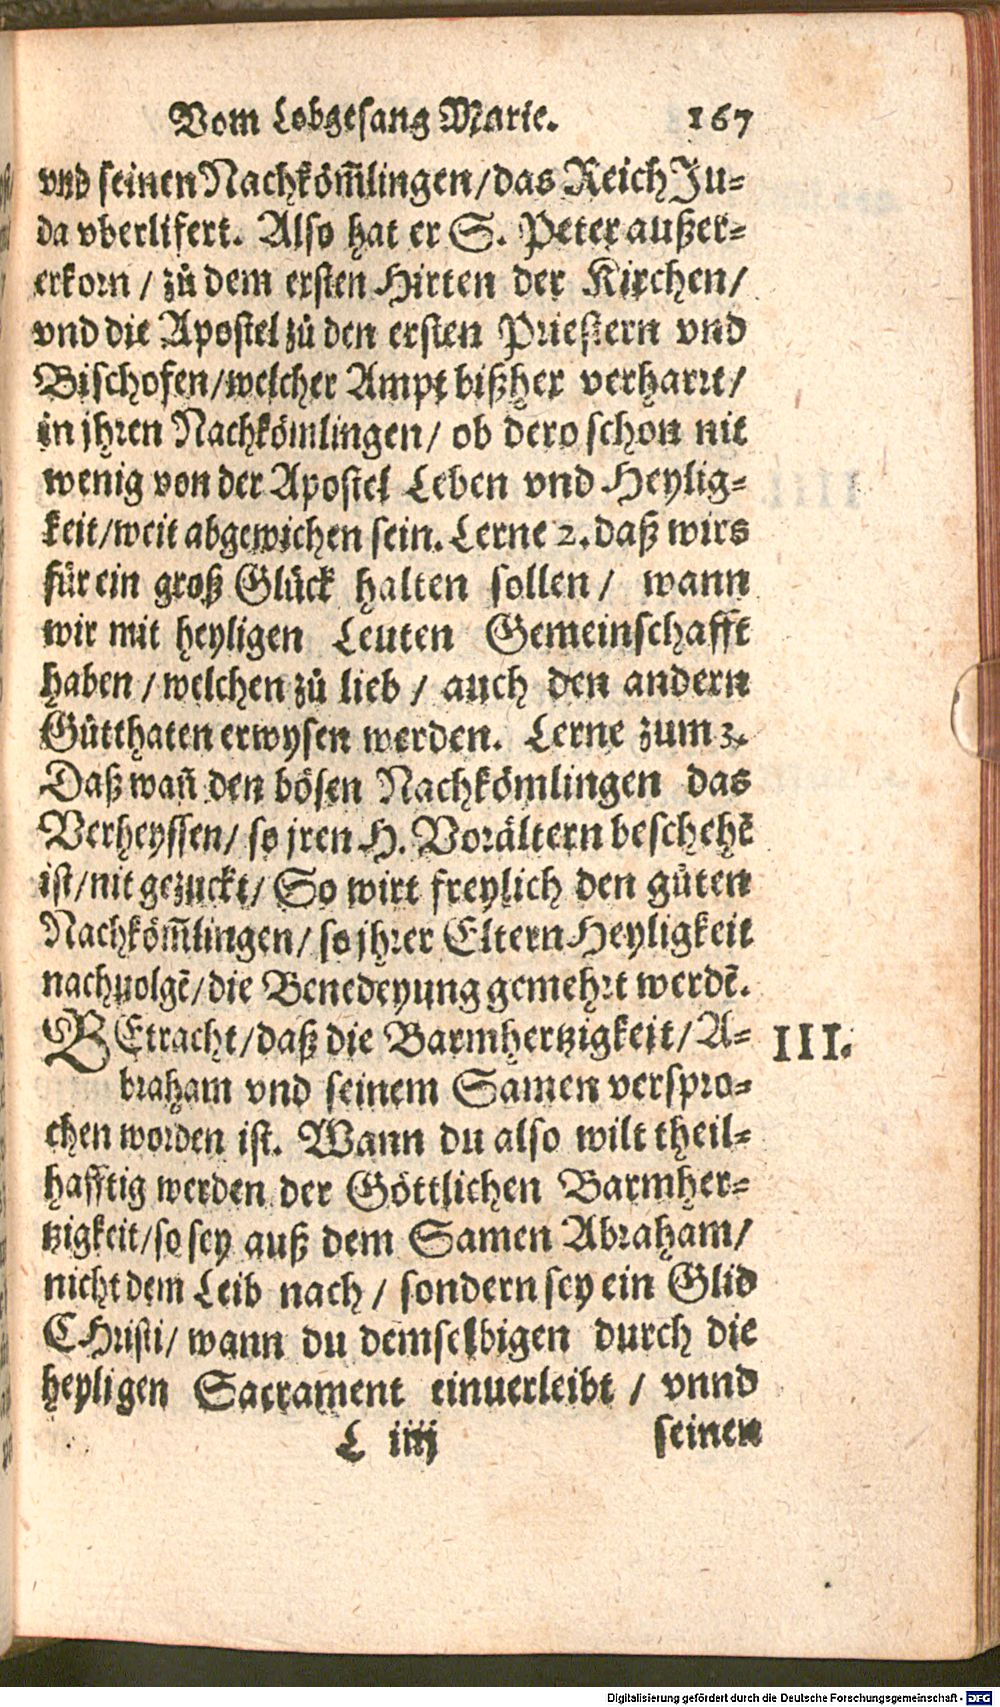 Vom Lobgesang Marie. 167
vnd seinen Nachköm̃lingen / das Reich Ju-
da vberlifert. Also hat er S. Peter außer-
erkorn / zů dem ersten Hirten der Kirchen /
vnd die Apostel zů den ersten Priestern vnd
Bischofen / welcher Ampt bißher verharrt /
in jhren Nachkömlingen / ob dero schon nit
wenig von der Apostel Leben vnd Heylig-
keit / weit abgewichen sein. Lerne 2. daß wirs
für ein groß Glück halten sollen / wann
wir mit heyligen Leuten Gemeinschafft
haben / welchen zů lieb / auch den andern
Gůtthaten erwysen werden. Lerne zum 3.
Daß wañ den bösen Nachkömlingen das
Verheyssen / so jren H. Vorältern beschehẽ
ist / nit gezuckt / So wirt freylich den gůten
Nachköm̃lingen / so jhrer Eltern Heyligkeit
nachuolgẽ / die Benedeyung gemehrt werdẽ.
BEtracht / daß die Barmhertzigkeit / A- III.
braham vnd seinem Samen verspro-
chen worden ist. Wann du also wilt theil-
hafftig werden der Göttlichen Barmher-
tzigkeit / so sey auß dem Samen Abraham /
nicht dem Leib nach / sondern sey ein Glid
CHristi / wann du demselbigen durch die
heyligen Sacrament einuerleibt / vnnd
L iiij seinen
Digitalisierung gefördert durch die Deutsche Forschungsgemeinschaft - DFG